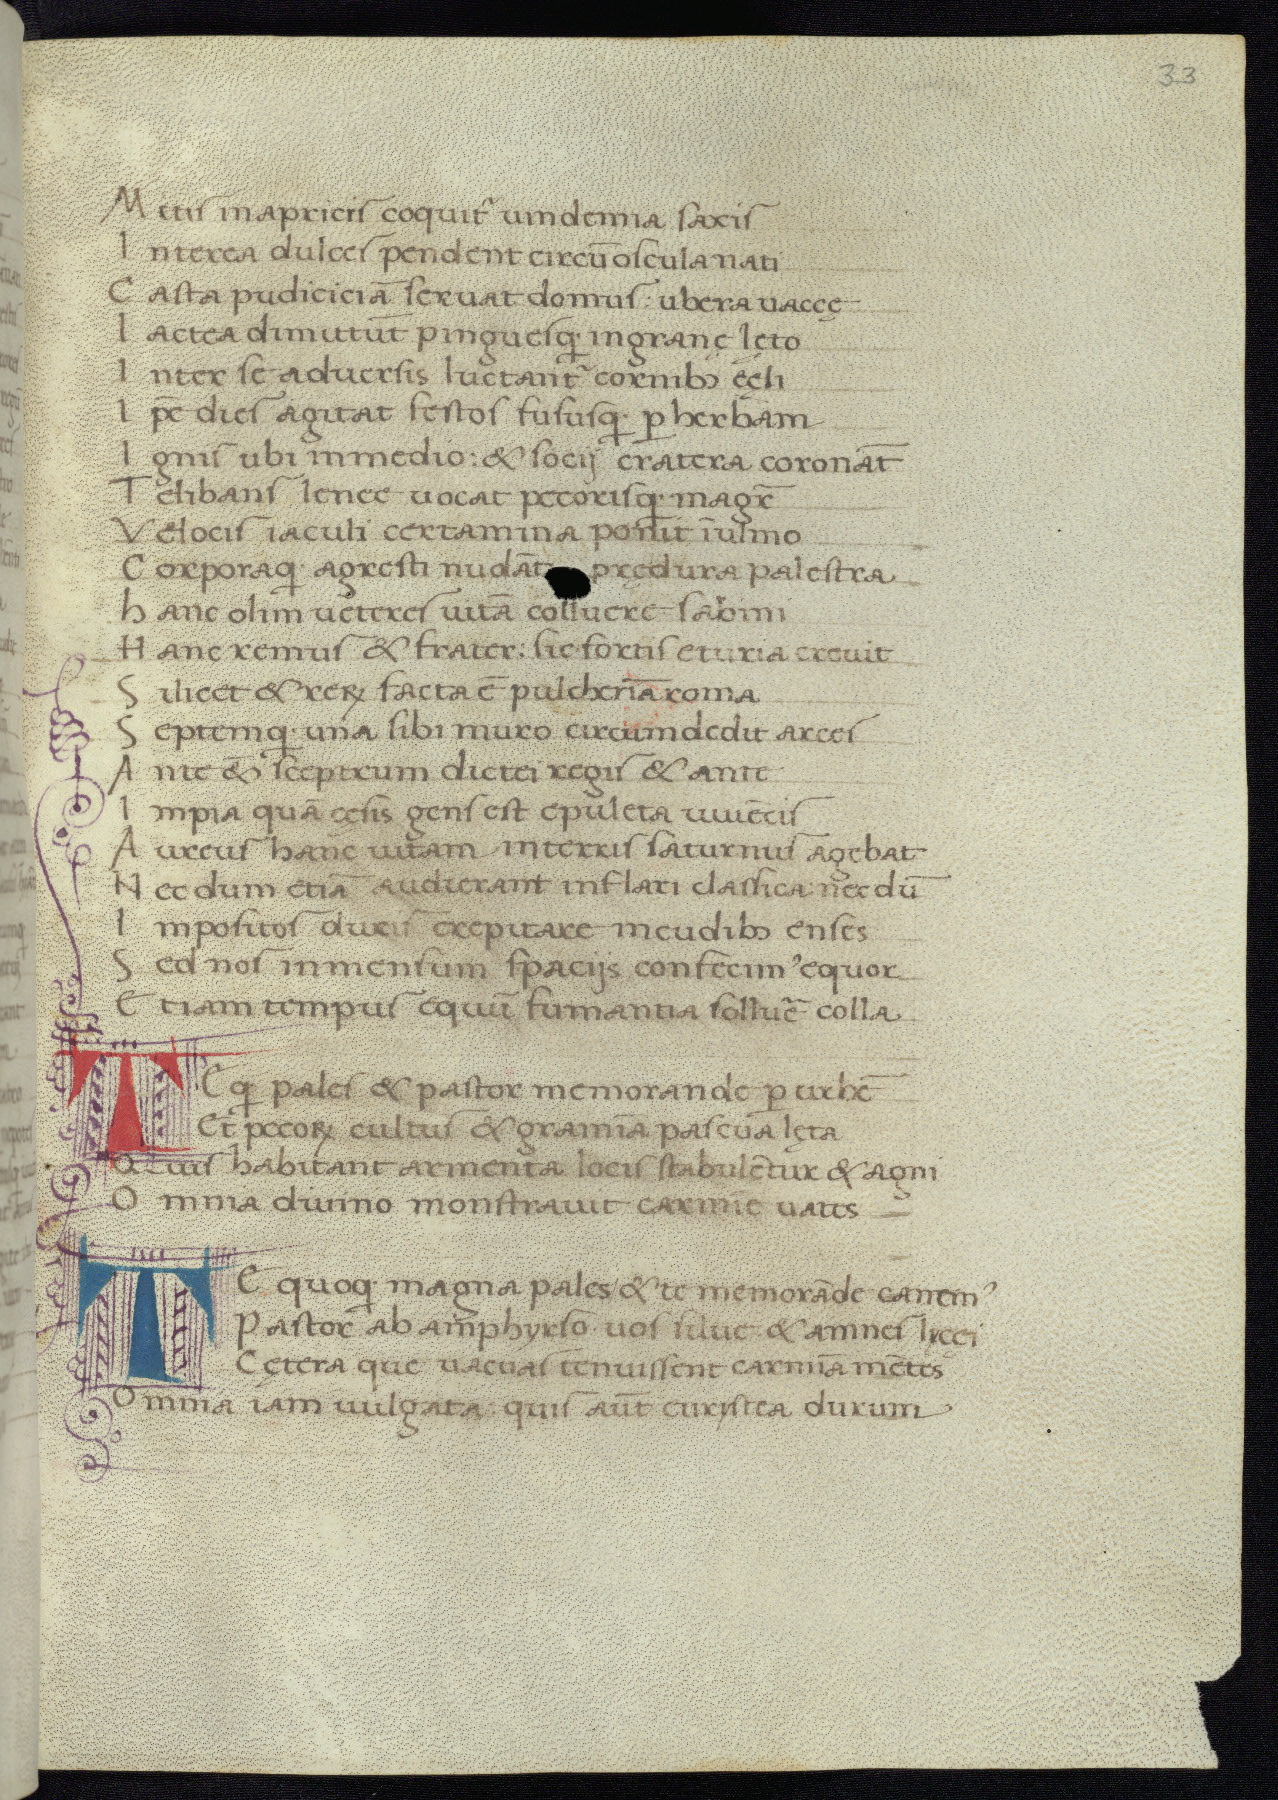 33
Mitis inapricis coquit᷑ uindemia saxis
Interea dulces pendent circū oscula nati
Casta pudiciciā seruat domus: ubera uaccę
lactea dimittūt pinguesq; ingranę lęto
Inter se aduersis luctant᷑ cornibꝫ ęęli
Ipē dies agitat festos fususq; ꝑ herbam
Ignis ubi inmedio: & socij cratera coronāt
Te libans lenee uocat pecorisq; magr̄
Velocis iaculi certamina ponit ī ulmo
Corporaq; agresti nudāt prędura palestra
hanc olim ueteres uitā colluere sabini
Hanc remus & frater: sic fortis eturia creuit
Silicet & rerꝝ facta ē pulcherīa roma
Septemq; una sibi muro circumdedit arces
Ante & sceptrum dictei regis & ante
Impia quā cęsis gens est epuleta iuuēcis
Aureus hanc uitam interris saturnus agebat
Nec dum etiā audierant inflari classica: nec dū
Impositos duris crepitare incudibꝫ enses
Sed nos inmensum spacijs confecim᾿ equor
Etiam tempus equū fumantia solluē colla
TEq; pales & pastor memorande ꝑ urbē
Et pecorꝝ cultus & gramīa pascua lęta
Quis habitant armenta locis stabulētur & agni
Omnia diuino monstrauit carmīe uates
TE quoq; magna pales & te memorāde canem᾿
Pastor ab amphyrso uos silue & amnes lycei
Cętera que uacuas tenuissent carmīa mētes
Omnia iam uulgata: quis aūt eurystea durum